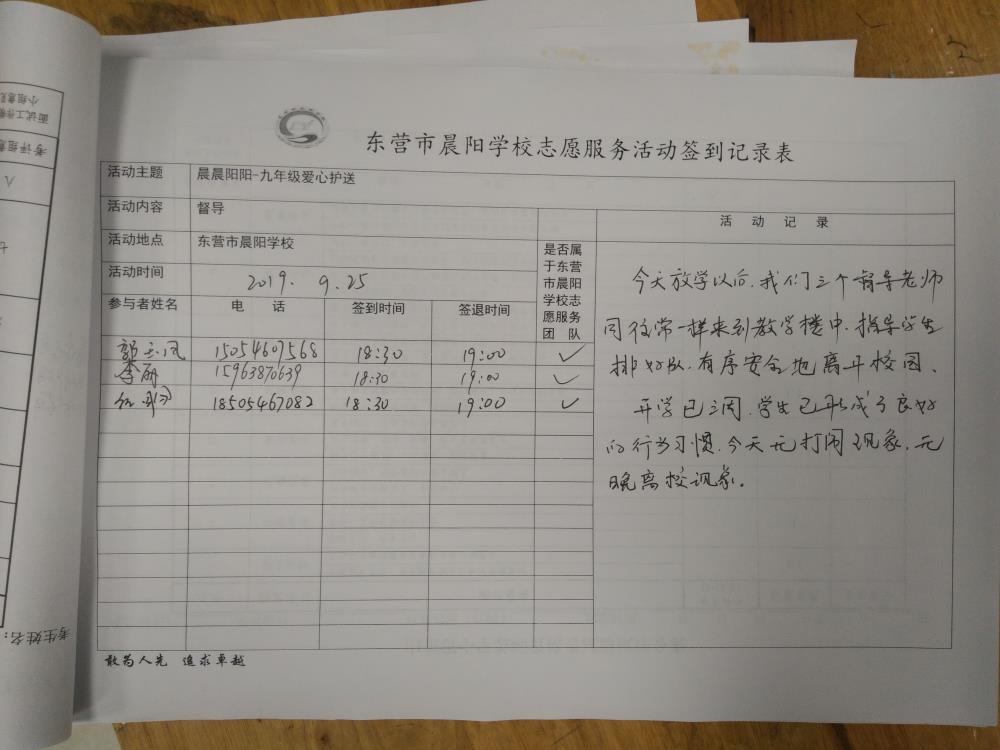 东营市晨阳学校志愿服务活动签到记录表
活动主题 晨晨阳阳-九年级爱心护送
活动内容 督导
活动地点 东营市晨阳学校
活动时间 2019. 9.25
参与者姓名 电 话 签到时间 签退时间
是否属
于东营
市晨阳
学校志
愿服务
团 队
郭玉凤 15054607568 18:30 19:00 ✓
李丽 15963870639 18:30 19:00 ✓
18505467082 18:30 19:00 ✓
活 动 记 录
今天放学以后,我们三个督导老师
同往常一样来到教学楼中,指导学生
排好队,有序安全地离开校园、
开学已三周,学生已形成了良好
的行为习惯,今天无打闹现象,无
晚离校现象。
敢为人先 追求卓越
小组意见
面试工作
考评组意
八
七
考生姓名: